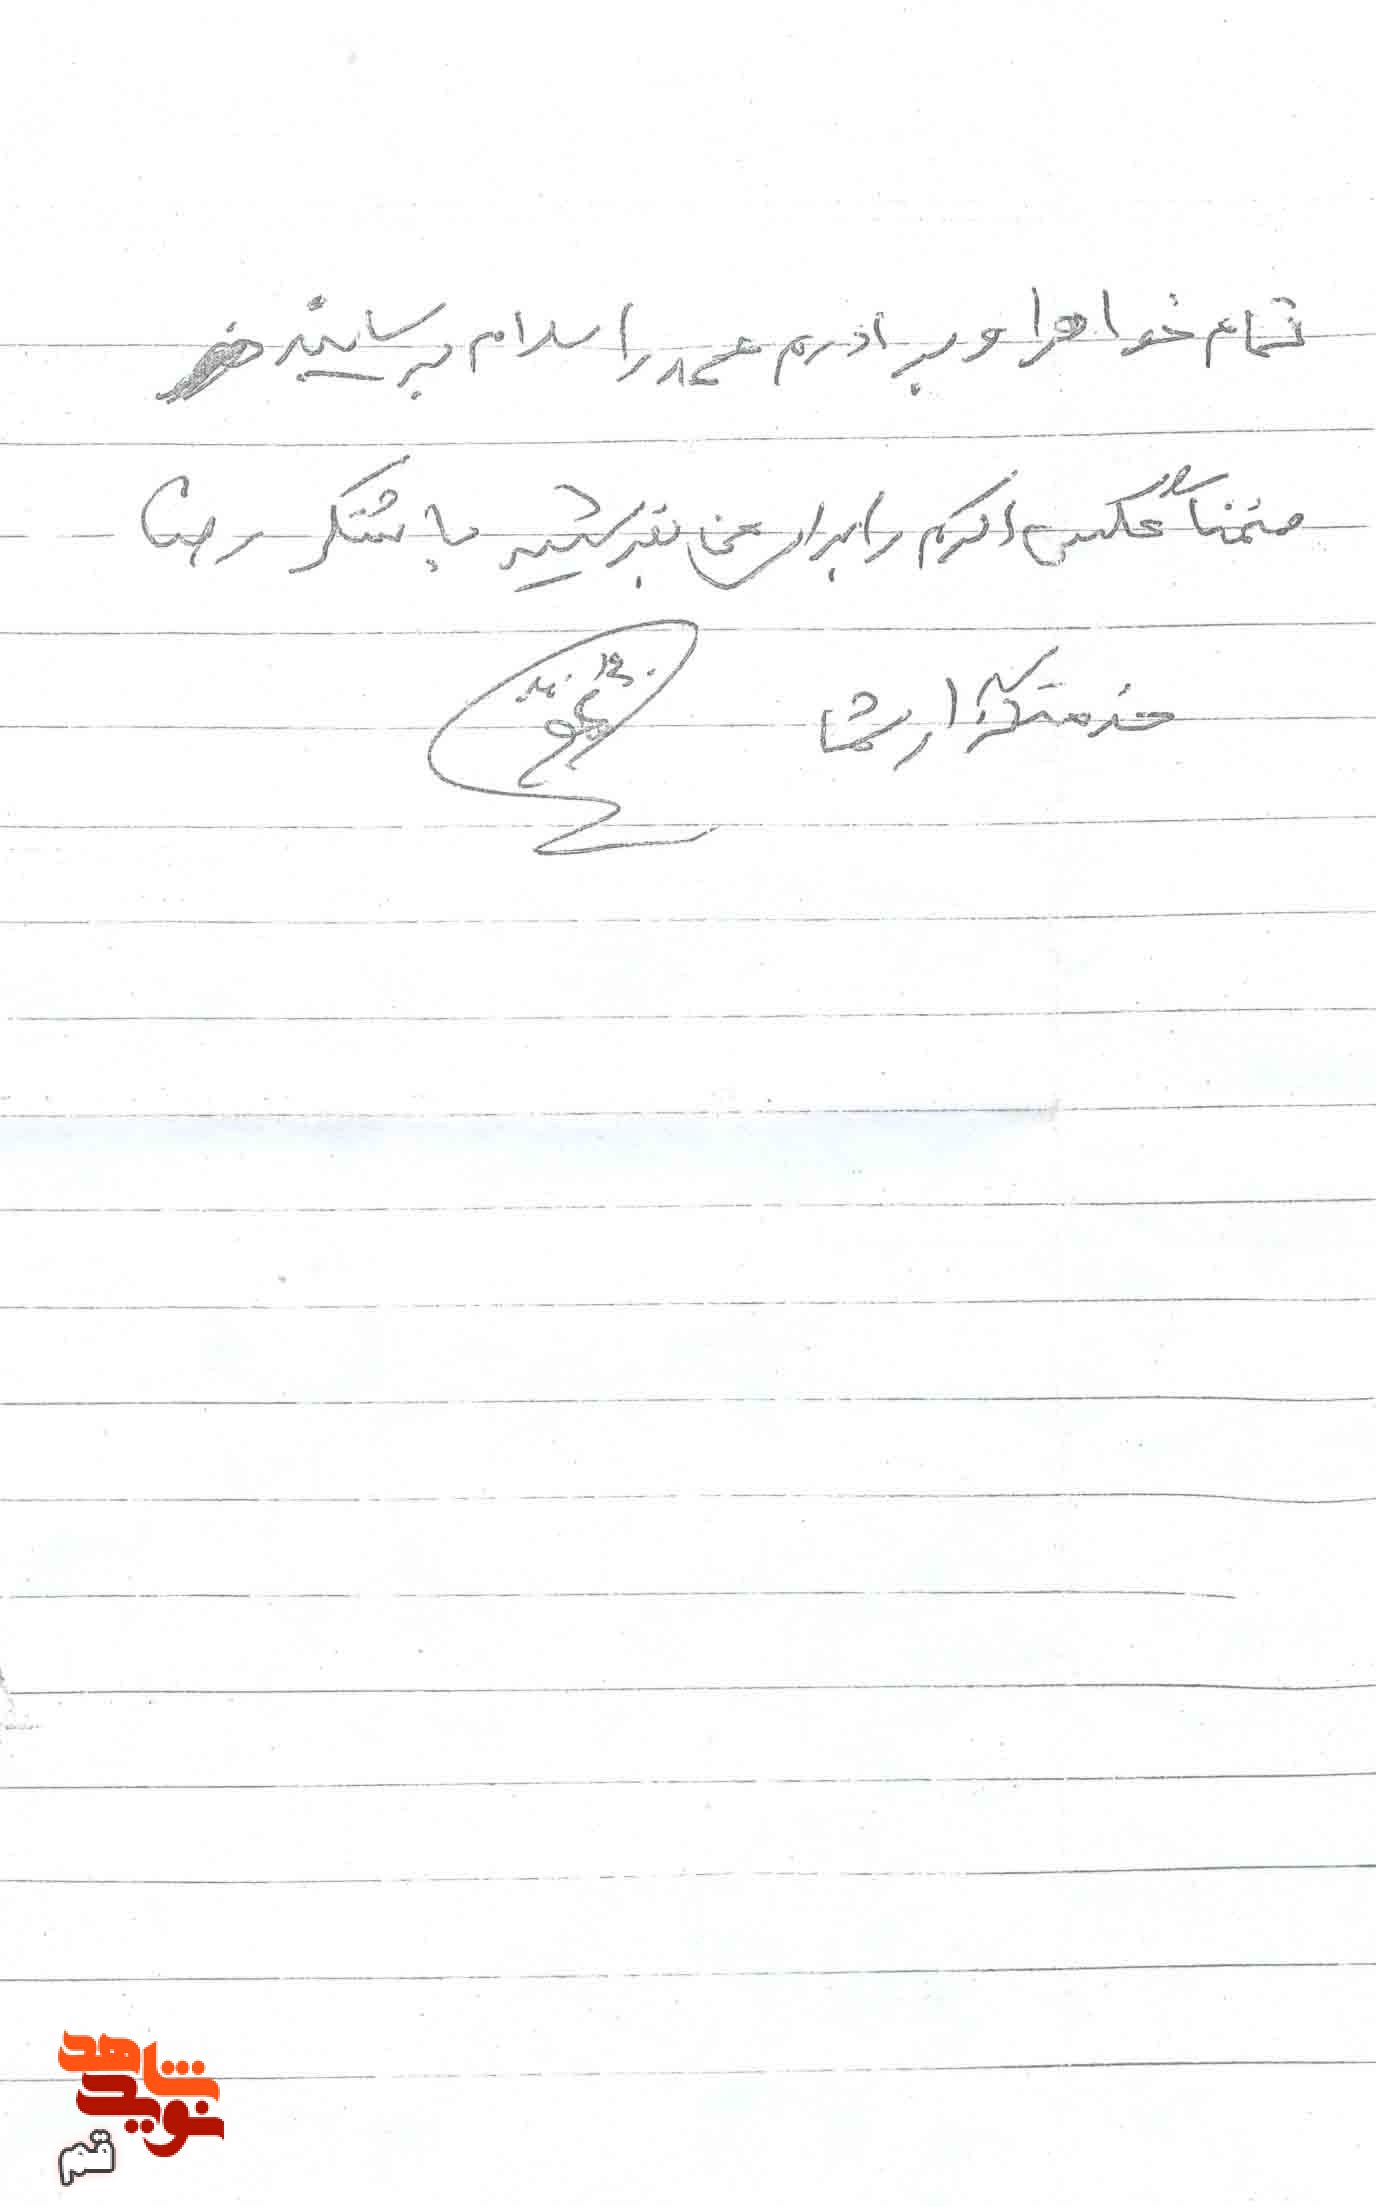 تمام خواهرا و برادرم محمد را سلام برسانید
ضمناً عکس اکرم را برای من بفرستید با تشکر رضا
خدمتگزار شما
نوید شاهد
قم